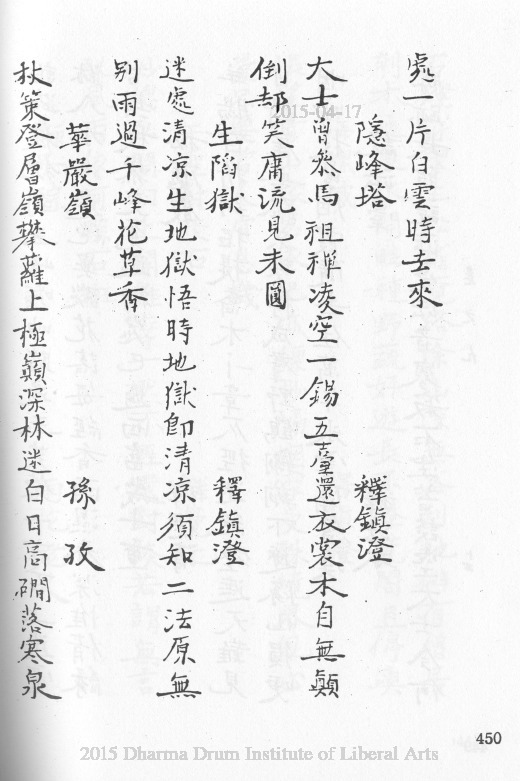 處一片白雲時去來
隱峰塔 釋鎮澄
大士曾參馬祖禪凌空一錫五臺還衣裳木自無顛
倒却笑庸流見未圓
生陷獄 釋鎮澄
迷處清凉生地獄悟時地獄即清凉須知二法原無
別雨過千峰花草香
華嚴嶺 孫玫
杖策登層嶺攀蘿上極巔深林迷白日高磵落寒泉
2015-04-17
450
2015 Dharma Drum Institute of Liberal Arts